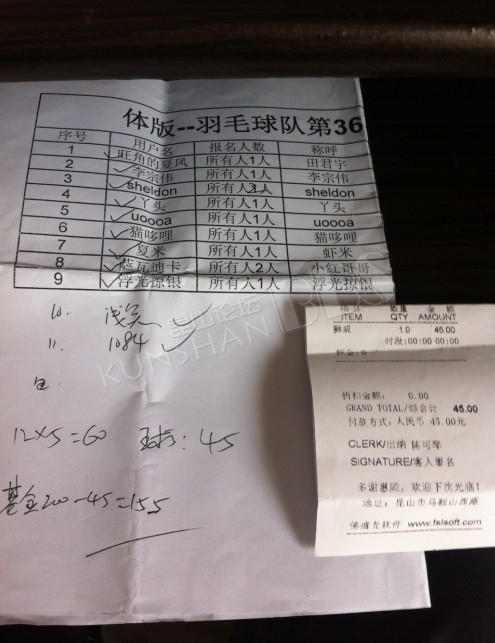 体版--羽毛球队第36
序号 用户名 报名人数 称呼
1 旺角的夏风 所有人1人 田君宇
2 李宗伟 所有人1人 李宗伟
3 sheldon 所有人 sheldon
4 丫头 所有人1人 丫头
5 uoooa 所有人1人 uoooa
6 猫哆哩 所有人1人 猫哆哩
7 夏米 所有人1人 虾米
8 萨瓦迪卡 所有人2人 小红哥哥
9 浮光掠银 所有人1人 浮光掠银
10.
11. 1084
12×5=60 球: 45
基金200-45=155
昆山论坛 BBS
KUNSHAN
项目 数量 金额
ITEM QTY AMOUNT
1.0 45.00
时段:00:00 00:00
折扣金额: 0.00
GRAND TOTAL/综合计 45.00
付款方式: 人民币 45.00元
CLERK/出纳 陈可琴
SIGNATURE/客人署名
多谢惠顾，欢迎下次光临!
地址: 昆山市马鞍山西路
软件 www.fslsoft.com